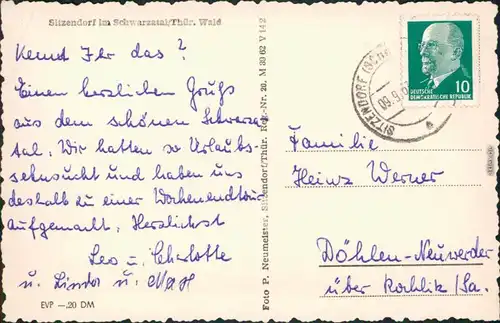 Sitzendorf im Schwarzatal/Thür. Wald
Kennt Ihr das?
Einen herzlichen Gruß
aus dem schönen Schwarza-
tal. Wir hatten so Urlaubs-
sehnsucht und haben uns
deshalb zu einer Wochenendtour
aufgemacht. Herzlichst
Leo u. Charlotte
u. Linda u.
EVP —.20 DM
Foto P. Neumeister, Sitzendorf/Thür. Reg.-Nr. 20. M 39 62 V 14 2
SITZENDORF
09.9.6
DEUTSCHE
DEMOKRATISCHE REPUBLIK
10
Familie
Heinz Werner
Döhlen-Neuwerder
über Rochlitz/Sa.